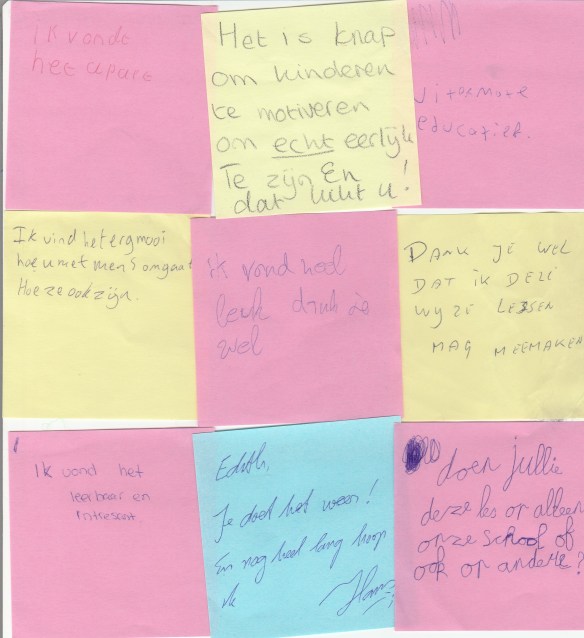 ik vonde
het apart
Het is knap
om kinderen
te motiveren
om echt eerlijk
Te zijn En
dat lukt u!
uitermate
educatief.
Ik vind het erg mooi
hoe u met mens omgaat
Hoe ze ook zijn.
ik vond heel
leuk dank je
wel
DANK JE WEL
DAT IK DEZE
WYZE LESSEN
MAG MEEMAKEN
Ik vond het
leerbaar en
intresant
Edith,
Je doet het weer!
En nog heel lang hoop
ik
doen jullie
deze les op alleen
onze school of
ook op andere?